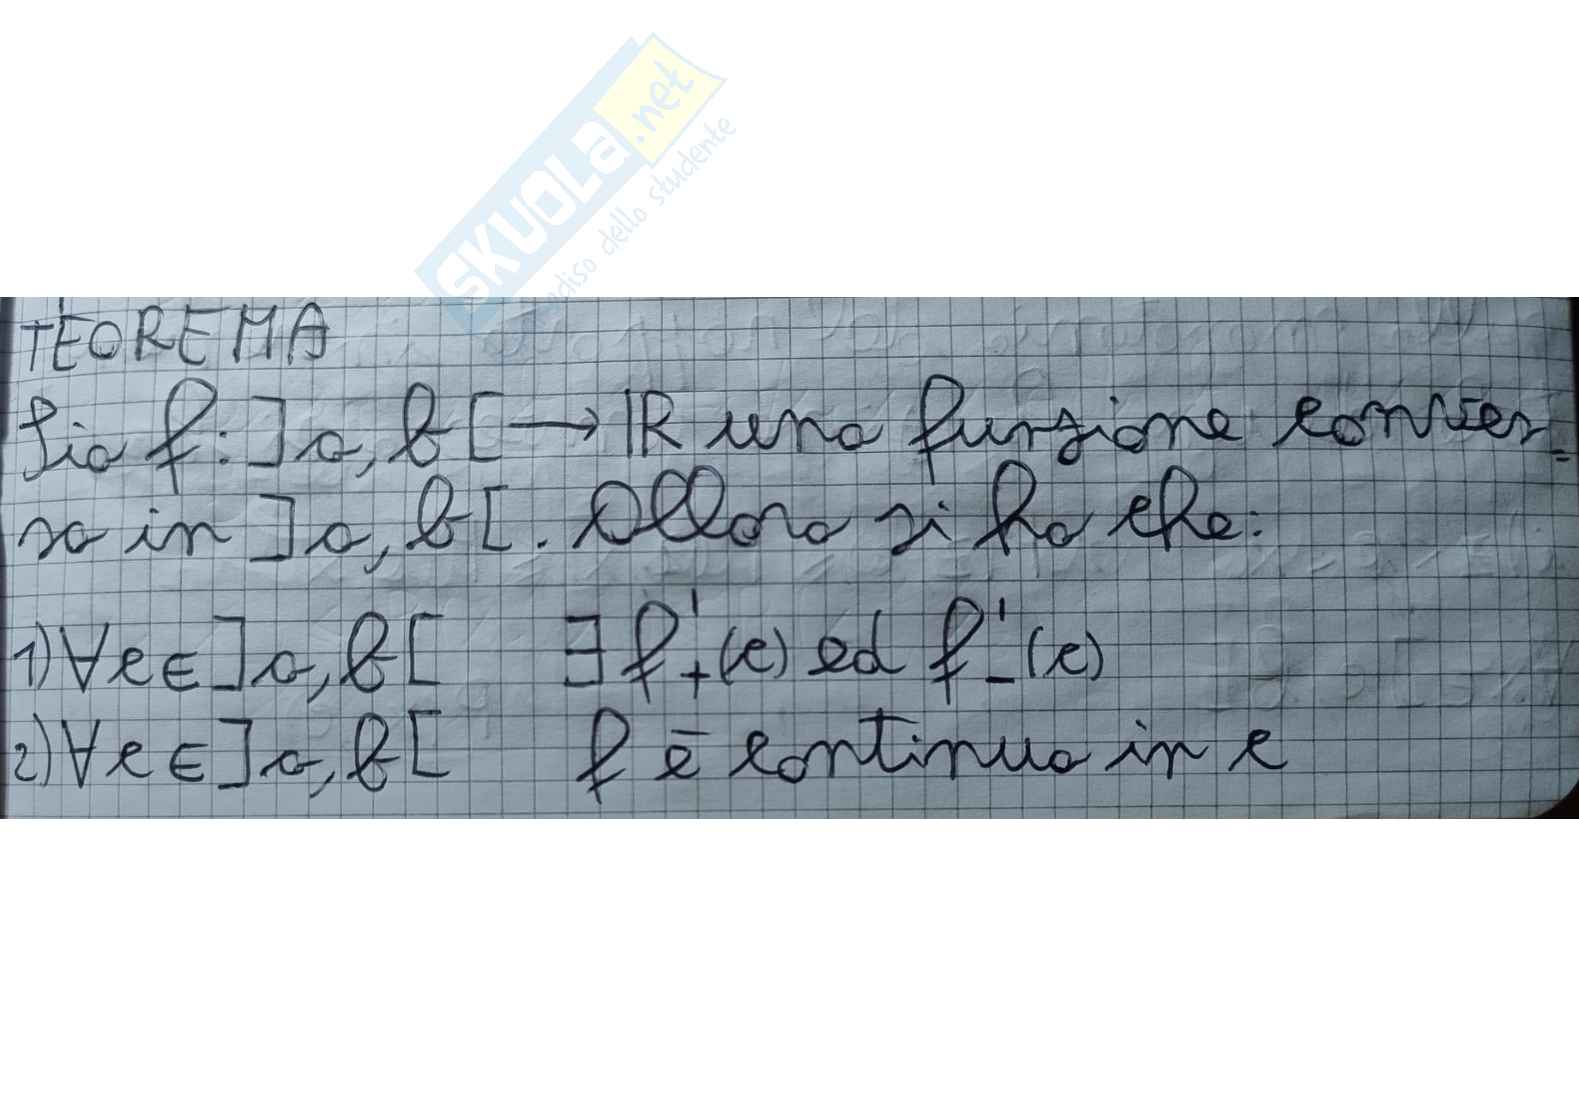 SKUOLA.net
dello studente
TEOREMA
Sia f: ]a, b[ → ℝ una funzione conves=
sa in ]a, b[. Allora si ha che:
1) ∀c ∈ ]a, b[ ∃ f'₊(c) ed f'₋(c)
2) ∀c ∈ ]a, b[ f è continua in c